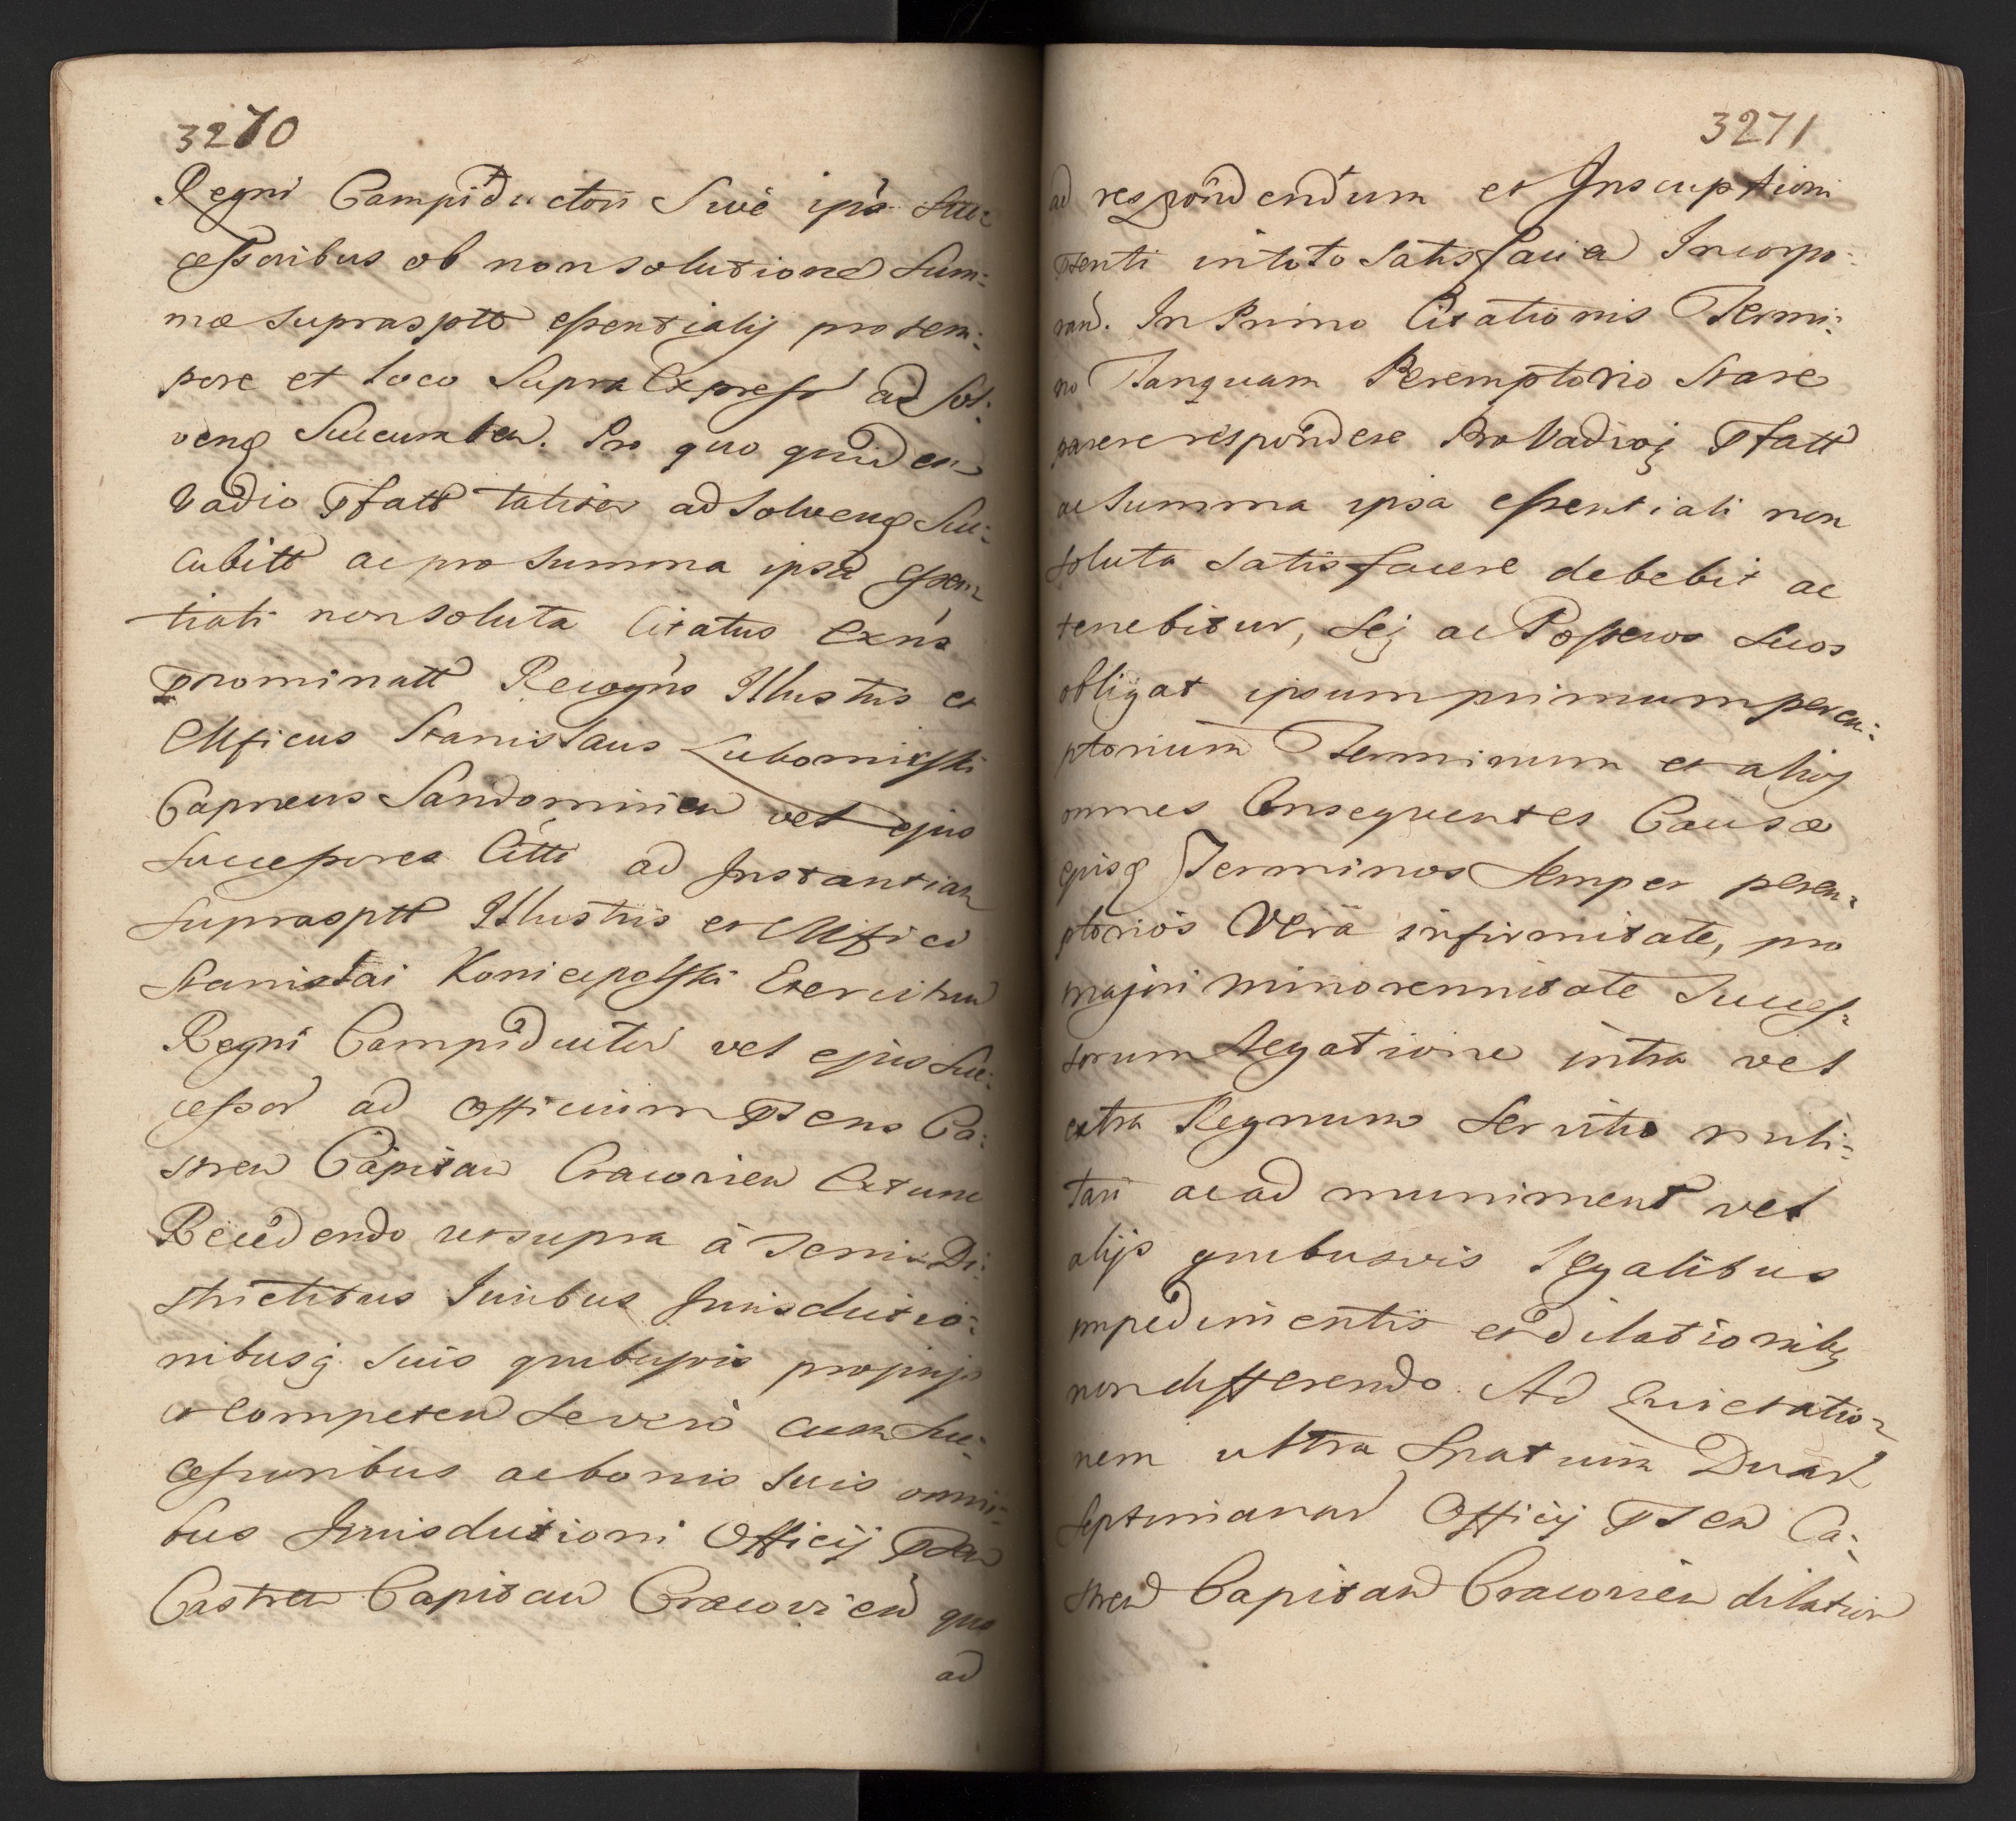 3270
Regni Campiductori Sive ipsi Suc-
cessoribus ob non solutione Sum:
mæ suprasptt essentialij pro tem:
pore et loco Supra Express ad Sol:
veng Succumben. Pro quo quidem
Vadio Pfatt taliter ad solveng Suc:
cubitt ac pro summa ipsa essen
tiali non soluta Citatus Exns
Pnominatt Recogns Illustris et
Mficus Stanislaus Lubomirski
Capneus Sandomirien vel ejus
Successores Citti ad Instantiam
suprasptt Illustris et Mfici
Stanislai Koniecpolski Exercituu
Regni Campiductor vel ejus Suc:
cessor ad officium Psens Ca:
stren Capitan Cracovien Extunc
Recedendo ut supra à Terris Di:
strictibus Juribus Jurisdictio:
nibusq suis quibusvis proprijs
et competen se vero cum Suc:
cessoribus ac bonis suis omni:
bus Jurisdictioni Officij Psen
Castren Capitan Cracovien quo
ad
3271
ad respondendum et Inscriptioni
Psenti in toto Satisfacien Incorpo:
rand. In Primo Citationis Termi:
no Tanquam Peremptorio Stare
parere respondere Pro Vadioq Pfatt
ac Summa ipsa essentiali non
soluta satisfacere debebit ac
tenebitur, Seq ac Posteros suos
obligat ipsum primum perem:
ptorium Terminum et alios
omnes Consequentes Causæ
ejusq Terminos Semper perem:
ptorios Vera infirmitate, pro
majori minorennitate Succes:
sorum legatione intra vel
extra Regnum Servitio mili:
tari ac ad muniment vel
alijs quibusvis legalibus
impedimentis et dilationibq
non differendo. Ad Quietatio-
nem ultra Spatium Duar
septimanar Officij Psen Ca:
stren Capitan Cracovien dilation